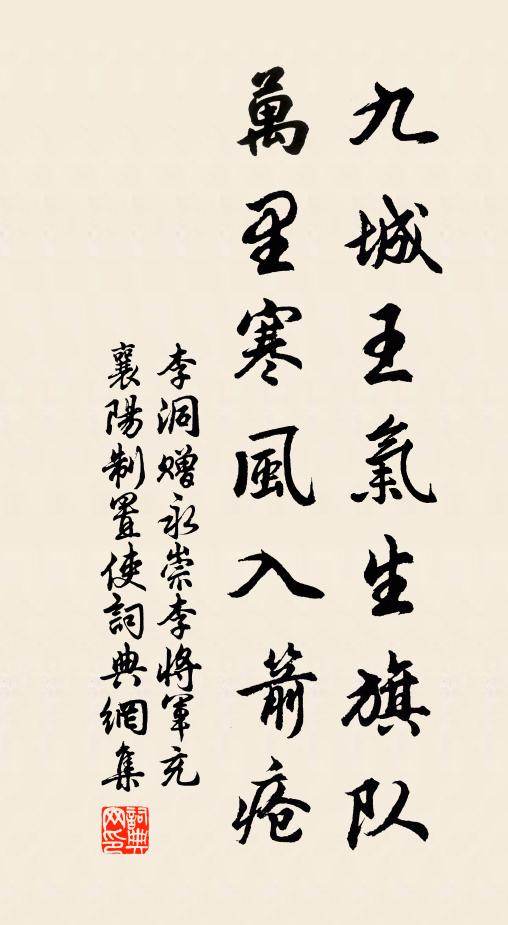 九城王氣生旗队
萬里寒風入箭瘡
李洞贈永崇李將軍充
襄陽制置使詞典網集
詞典网印